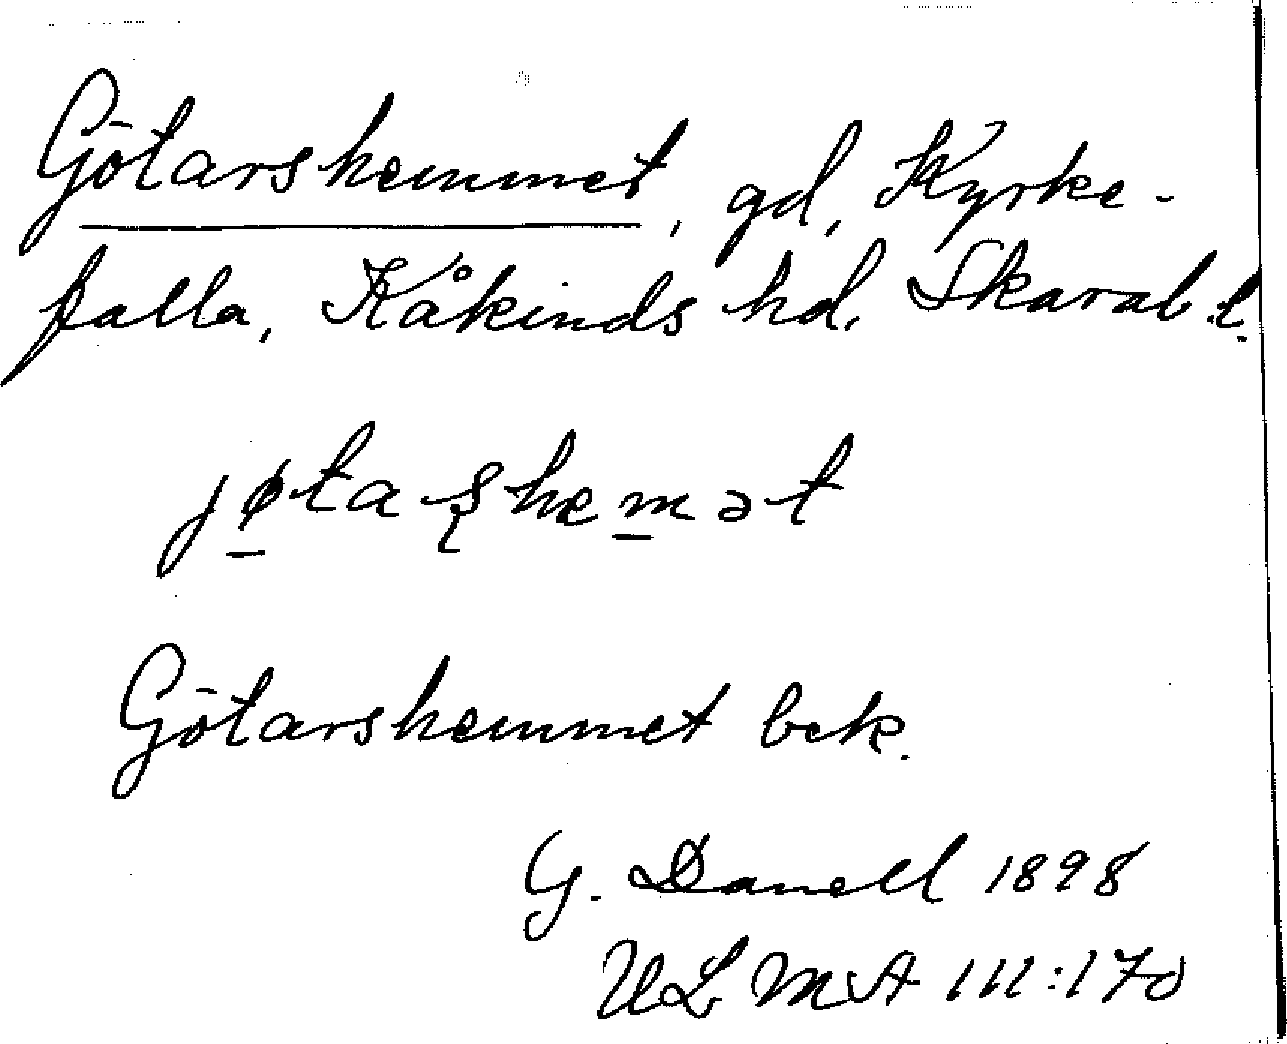 Götarshemmet, gd, Kyrke-
falla, Kåkinds hd. Skarab.l.
jøtaʂhemət
Götarshemmet bek.
G. Danell 1898
ULMA 111:170